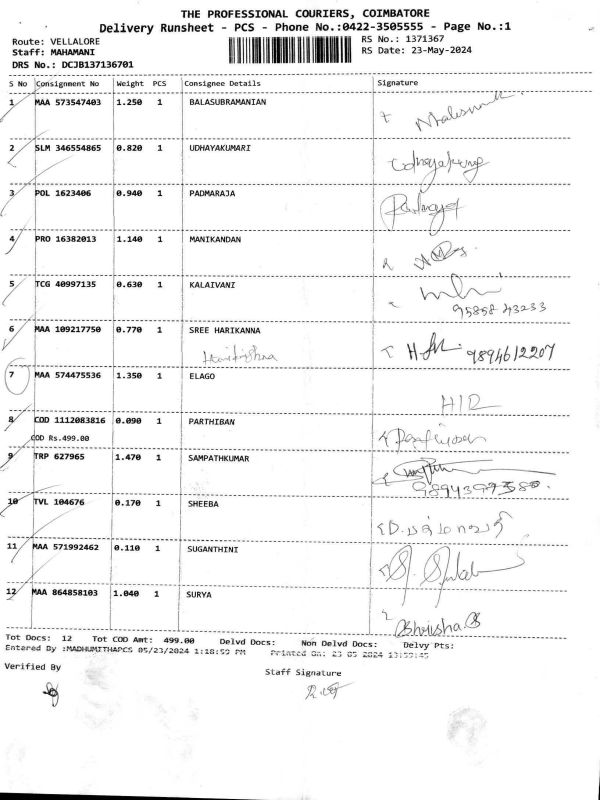 THE PROFESSIONAL COURIERS, COIMBATORE
Delivery Runsheet - PCS - Phone No.:0422-3505555 - Page No.:1
Route: VELLALORE
Staff: MAHAMANI
DRS No.: DCJB137136701
RS No.: 1371367
RS Date: 23-May-2024
S No Consignment No Weight PCS Consignee Details Signature
1 MAA 573547403 1.250 1 BALASUBRAMANIAN
2 SLM 346554865 0.820 1 UDHAYAKUMARI
3 POL 1623406 0.940 1 PADMARAJA
4 PRO 16382013 1.140 1 MANIKANDAN
5 TCG 40997135 0.630 1 KALAIVANI
95858 43233
6 MAA 109217750 0.770 1 SREE HARIKANNA
Harikrishna
9894612207
7 MAA 574475536 1.350 1 ELAGO
8 COD 1112083816 0.090 1 PARTHIBAN
COD Rs.499.00
9 TRP 627965 1.470 1 SAMPATHKUMAR
10 TVL 104676 0.170 1 SHEEBA
11 MAA 571992462 0.110 1 SUGANTHINI
12 MAA 864858103 1.040 1 SURYA
Tot Docs: 12 Tot COD Amt: 499.00 Delvd Docs: Non Delvd Docs: Delvy Pts:
Entered By :MADHUMITHAPCS 05/23/2024 1:18:59 PM Printed On: 23 05 2024 13:59:45
Verified By
Staff Signature